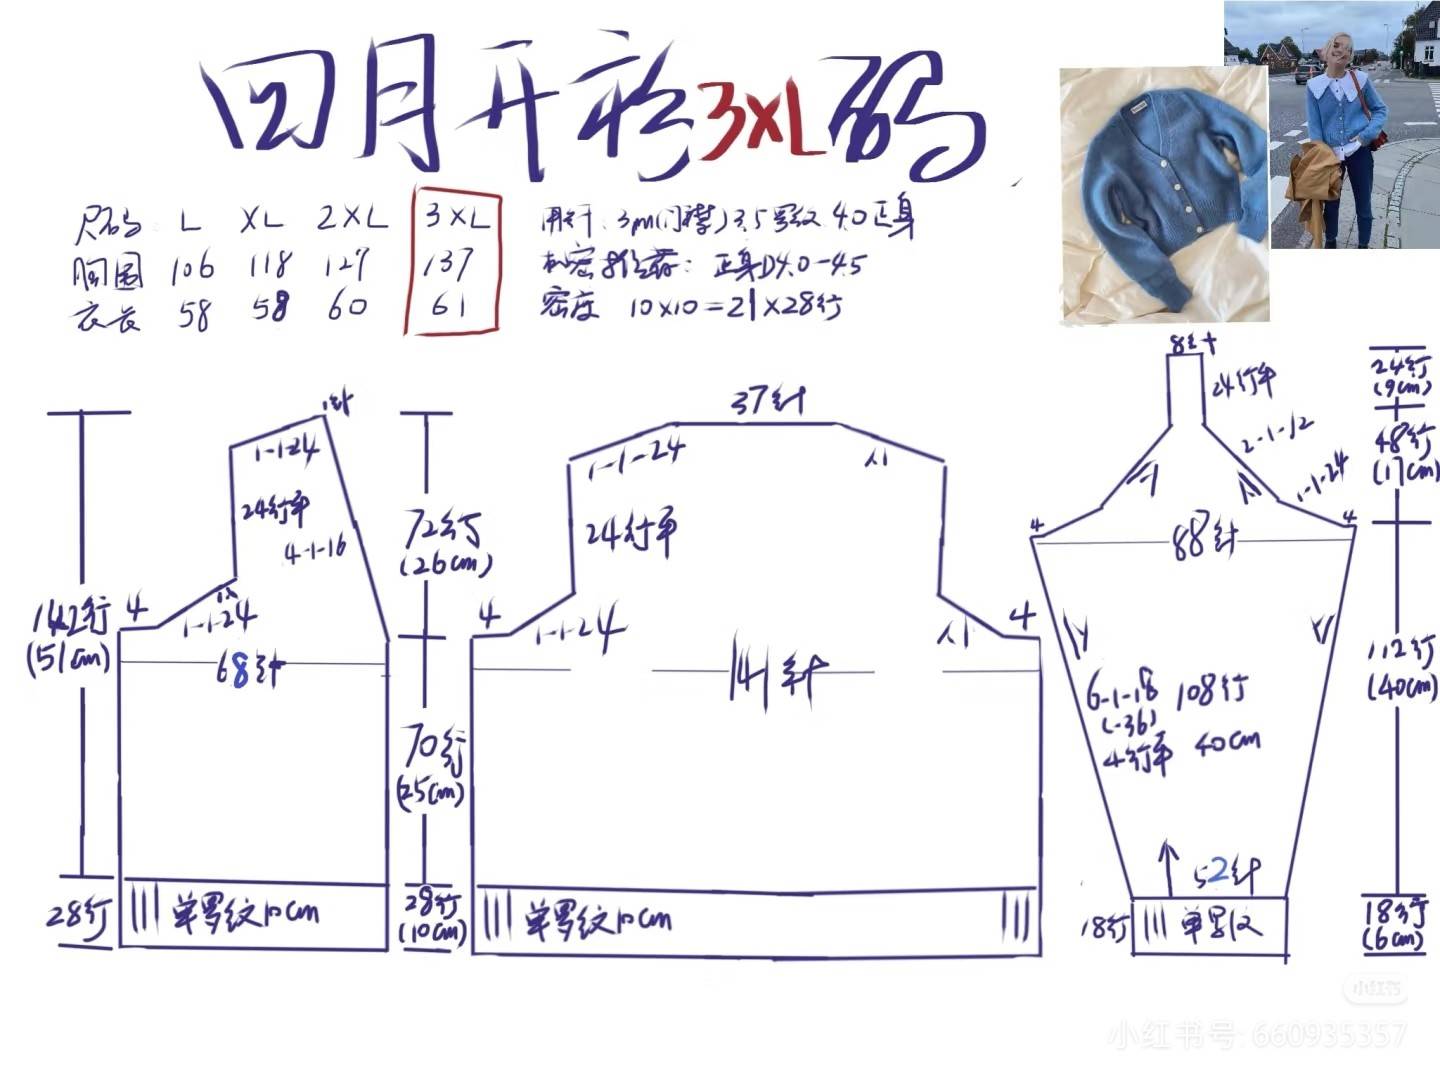 四月开衫3XL码
尺码 L XL 2XL 3XL
胸围 106 118 127 137
衣长 58 58 60 61
用针:3mm(门襟)3.5罗纹 4.0正身
正身D4.0-4.5
密度 10×10=21×28行
1针
1-1-24
24行平
4-1-16
4
1-1-24
68针
142行
(51cm)
28行
单罗纹10cm
72行
(26cm)
70行
(25cm)
28行
(10cm)
37针
1-1-24
人1
24行平
4
4
1-1-24
人1
141针
单罗纹10cm
8针
24行平
2-1-12
1-1-24
4
4
88针
6-1-18 108行
(-36)
4行平 40cm
52针
18行
单罗纹
24行
(9cm)
48行
(17cm)
112行
(40cm)
18行
(6cm)
小红书
小红书号: 660935357